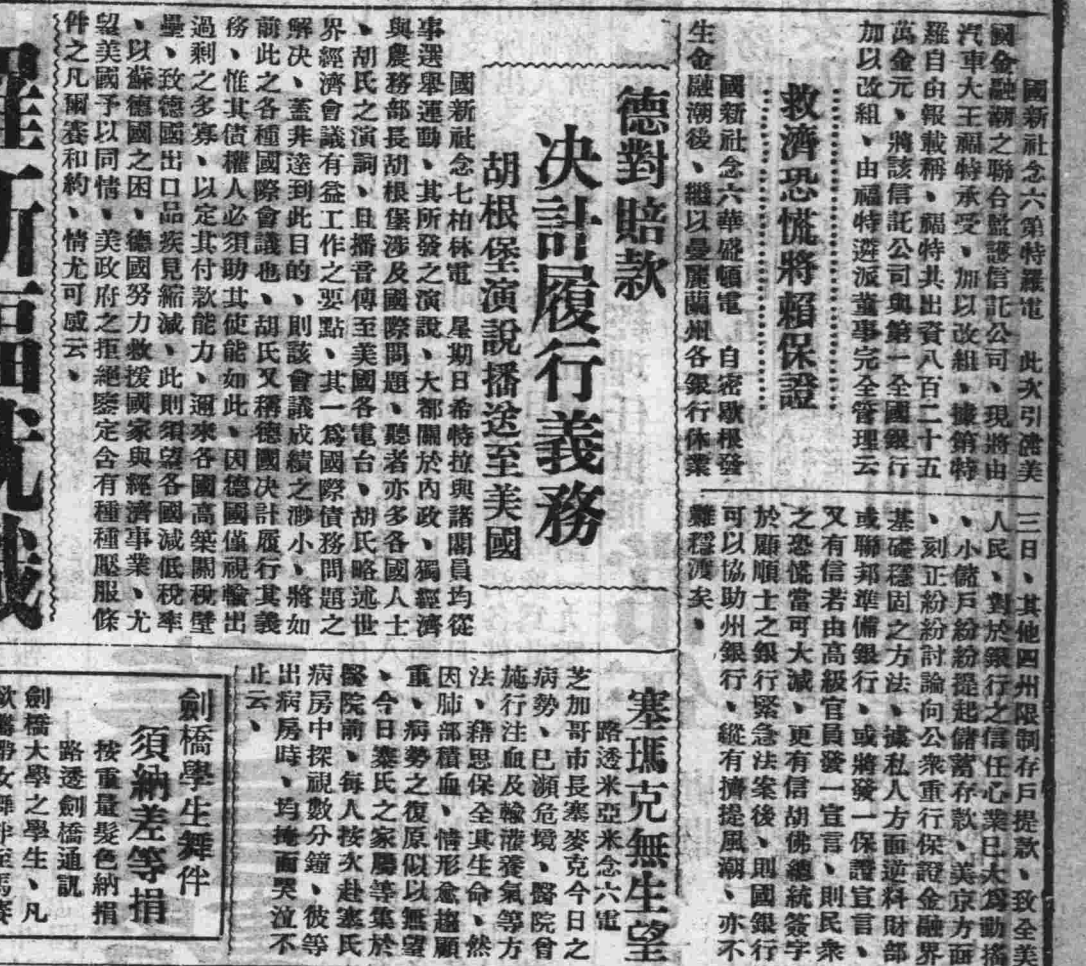 國新社念六第特羅電　此次引儲美
國金融潮之聯合監護信託公司、現將由
汽車大王福特承受、加以改組、據第特
羅自由報載稱、福特共出資八百二十五
萬金元、將該信託公司與第一全國銀行
加以改組、由福特遴派董事完全管理云
救濟恐慌將賴保證
國新社念六華盛頓電　自密歇根發
生金融潮後、繼以曼麗蘭州各銀行休業
三日、其他四州限制存戶提款、致全美
人民、對於銀行之信任心業已大爲動搖
、小儲戶紛紛提起儲蓄存款、美京方面
、刻正紛紛討論向公衆重行保證金融界
基礎穩固之方法、據私人方面逆料財部
或聯邦準備銀行、或將發一保證宣言、
又有信若由高級官員發一宣言、則民衆
之恐慌當可大減、更有信胡佛總統簽字
於顧順士之銀行緊急法案後、則國銀行
可以協助州銀行、縱有擠提風潮、亦不
難穩渡矣、
德對賠款
决計履行義務
胡根堡演說播送至美國
國新社念七柏林電　星期日希特拉與諸閣員均從
事選舉運動、其所發之演說、大都關於內政、獨經濟
與農務部長胡根堡涉及國際問題、聽者亦多各國人士
、胡氏之演詞、且播音傳至美國各電台、胡氏略述世
界經濟會議有益工作之要點、其一爲國際債務問題之
解决、蓋非達到此目的、則該會議成績之渺小、將如
前此之各種國際會議也、胡氏又稱德國决計履行其義
務、惟其債權人必須助其使能如此、因德國僅視輸出
過剩之多寡、以定其付款能力、邇來各國高築關稅壁
壘、致德國出口品疾見縮減、此則須望各國減低稅率
、以蘇德國之困、德國努力救援國家與經濟事業、尤
望美國予以同情、美政府之拒絕鑒定含有種種壓服條
件之凡爾賽和約、情尤可感云、
塞瑪克無生望
路透米亞米念六電
芝加哥市長塞麥克今日之
病勢、已瀕危境、醫院曾
施行注血及輸灌養氣等方
法、藉思保全其生命、然
因肺部積血、情形愈趨顧
重、病勢之復原似以無望
、今日塞氏之家屬等集於
醫院前、每人按次赴塞氏
病房中探視數分鐘、彼等
出病房時、均掩面哭泣不
止云、
劍橋學生舞伴
須納差等捐
按重量髮色納捐
路透劍橋通訊
劍橋大學之學生、凡